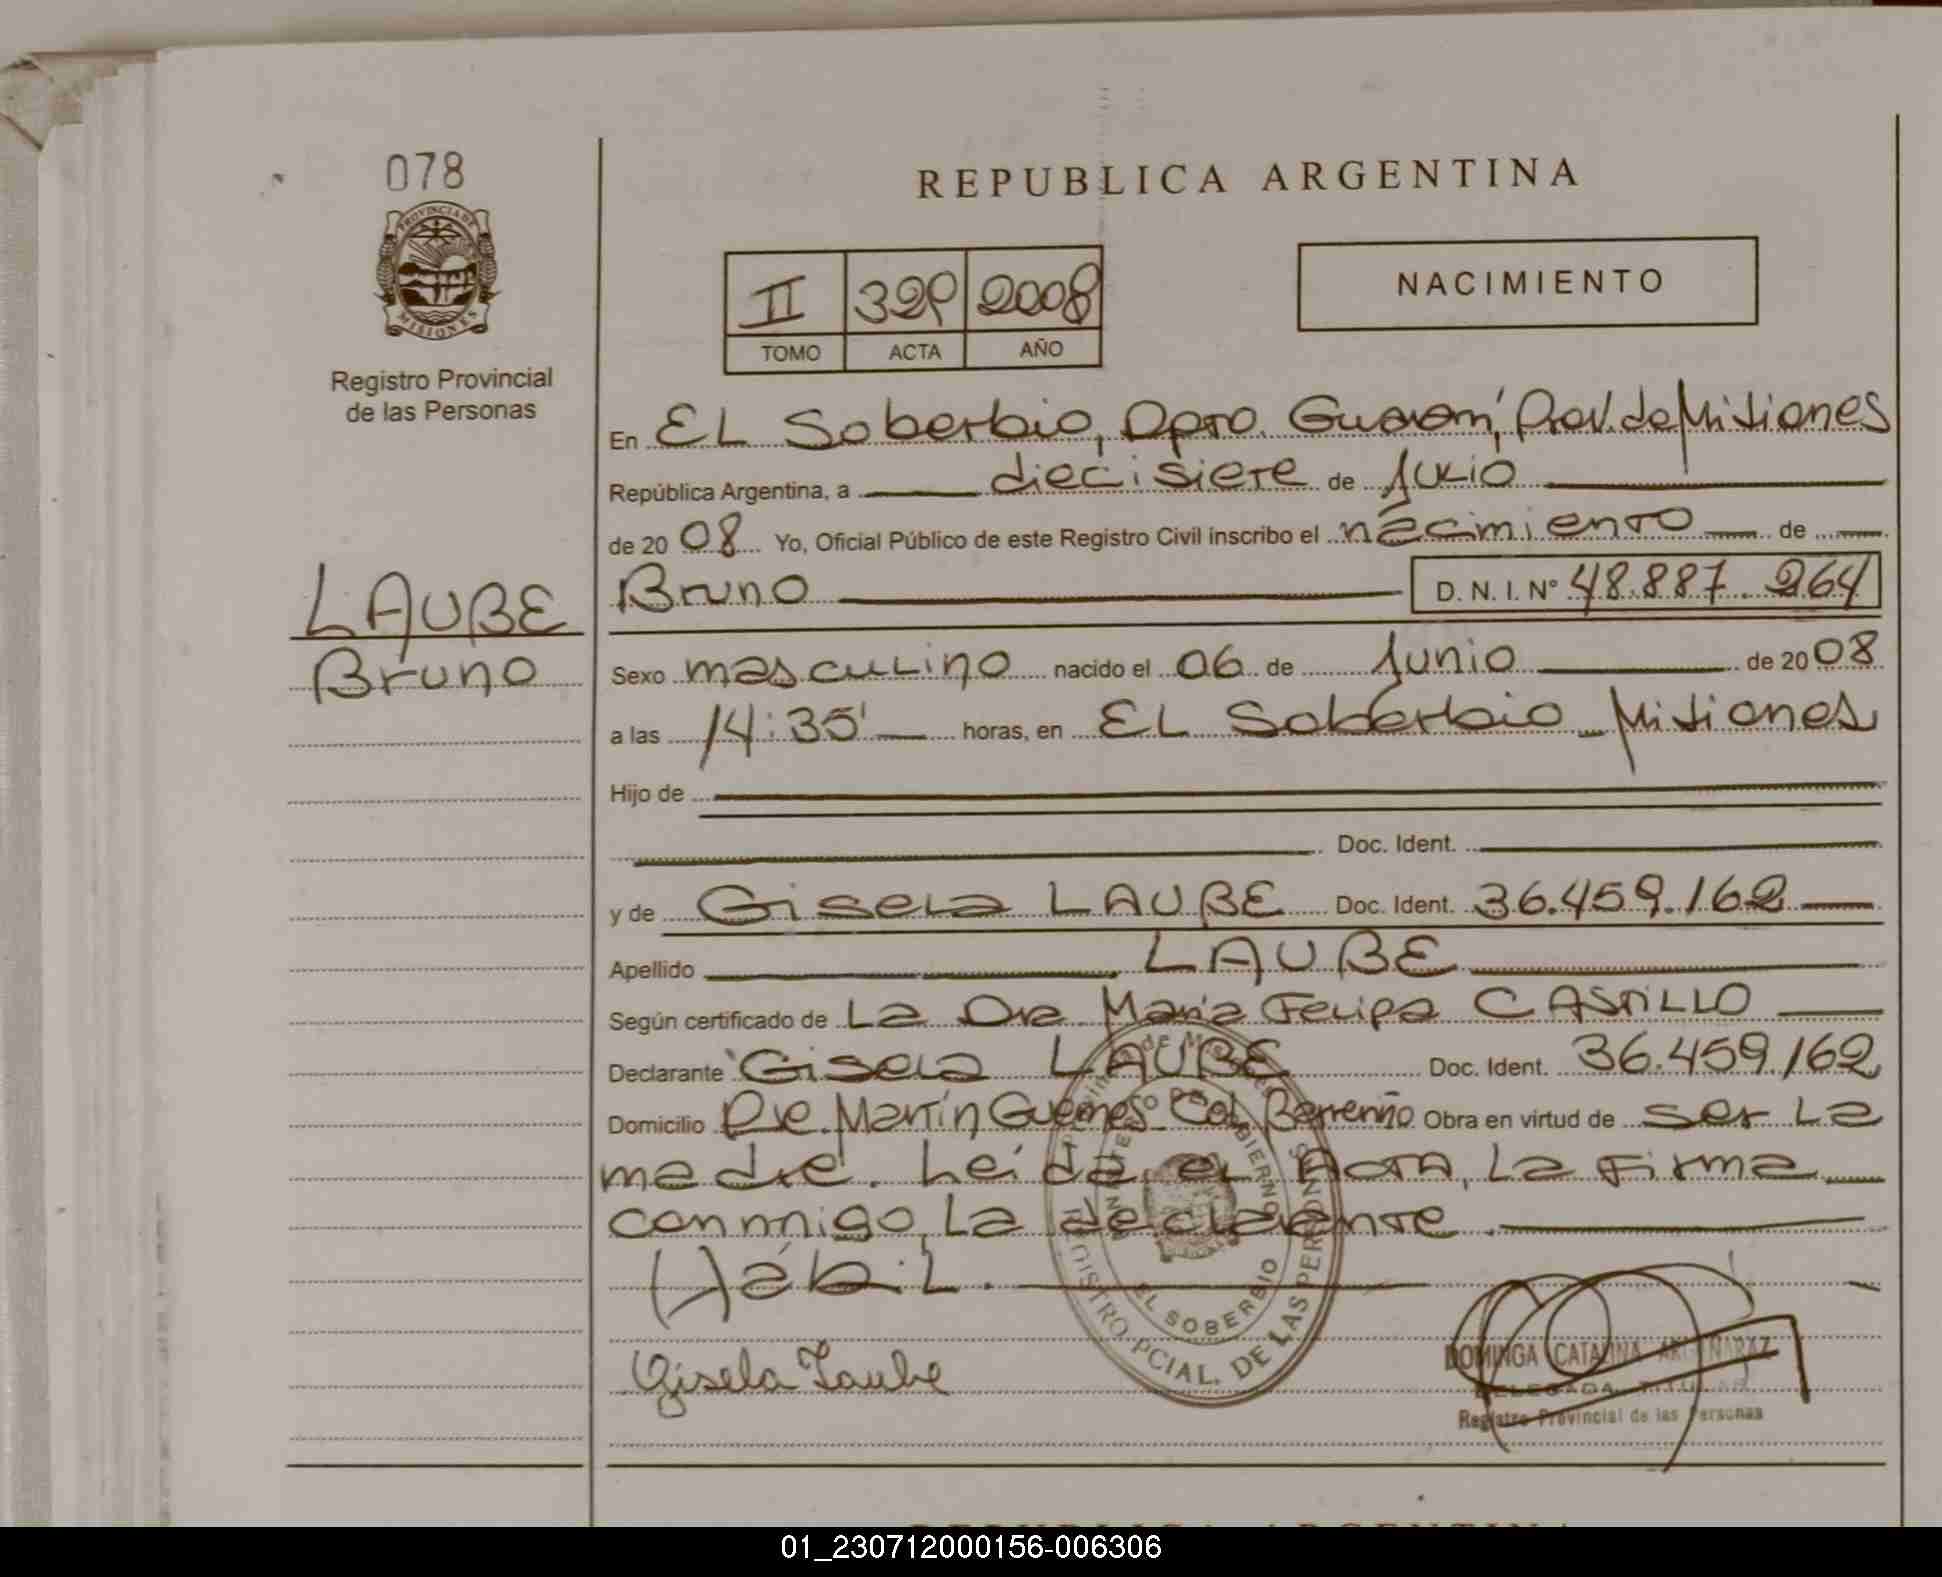 078
PROVINCIA DE
MISIONES
Registro Provincial
de las Personas
REPUBLICA ARGENTINA
II 329 2008
TOMO ACTA AÑO
NACIMIENTO
En EL Soberbio, Dpto. Guaraní, Prov. de Misiones
República Argentina, a diecisiete de Julio
de 2008 Yo, Oficial Público de este Registro Civil inscribo el nacimiento de
LAUBE
Bruno
Bruno D. N. I. Nº 48.887.264
Sexo masculino nacido el 06 de Junio de 2008
a las 14:35' horas, en EL Soberbio - Misiones
Hijo de
Doc. Ident.
y de Gisela LAUBE Doc. Ident. 36.459.162
Apellido LAUBE
Según certificado de La Dra María Felipa CASTILLO
Declarante Gisela LAUBE Doc. Ident. 36.459.162
Domicilio Pje. Martín Guemes Col. Obra en virtud de ser La
madre. Leída el Acta, La firma
conmigo La declarante.
(-) ábil.
Gisela Laube
EL SOBERBIO
REGISTRO PCIAL. DE LAS PERSONAS
DOMINGA CATALINA ARGAÑARAZ
DELEGADA TITULAR
Registro Provincial de las Personas
REPUBLICA ARGENTINA
01_230712000156-006306